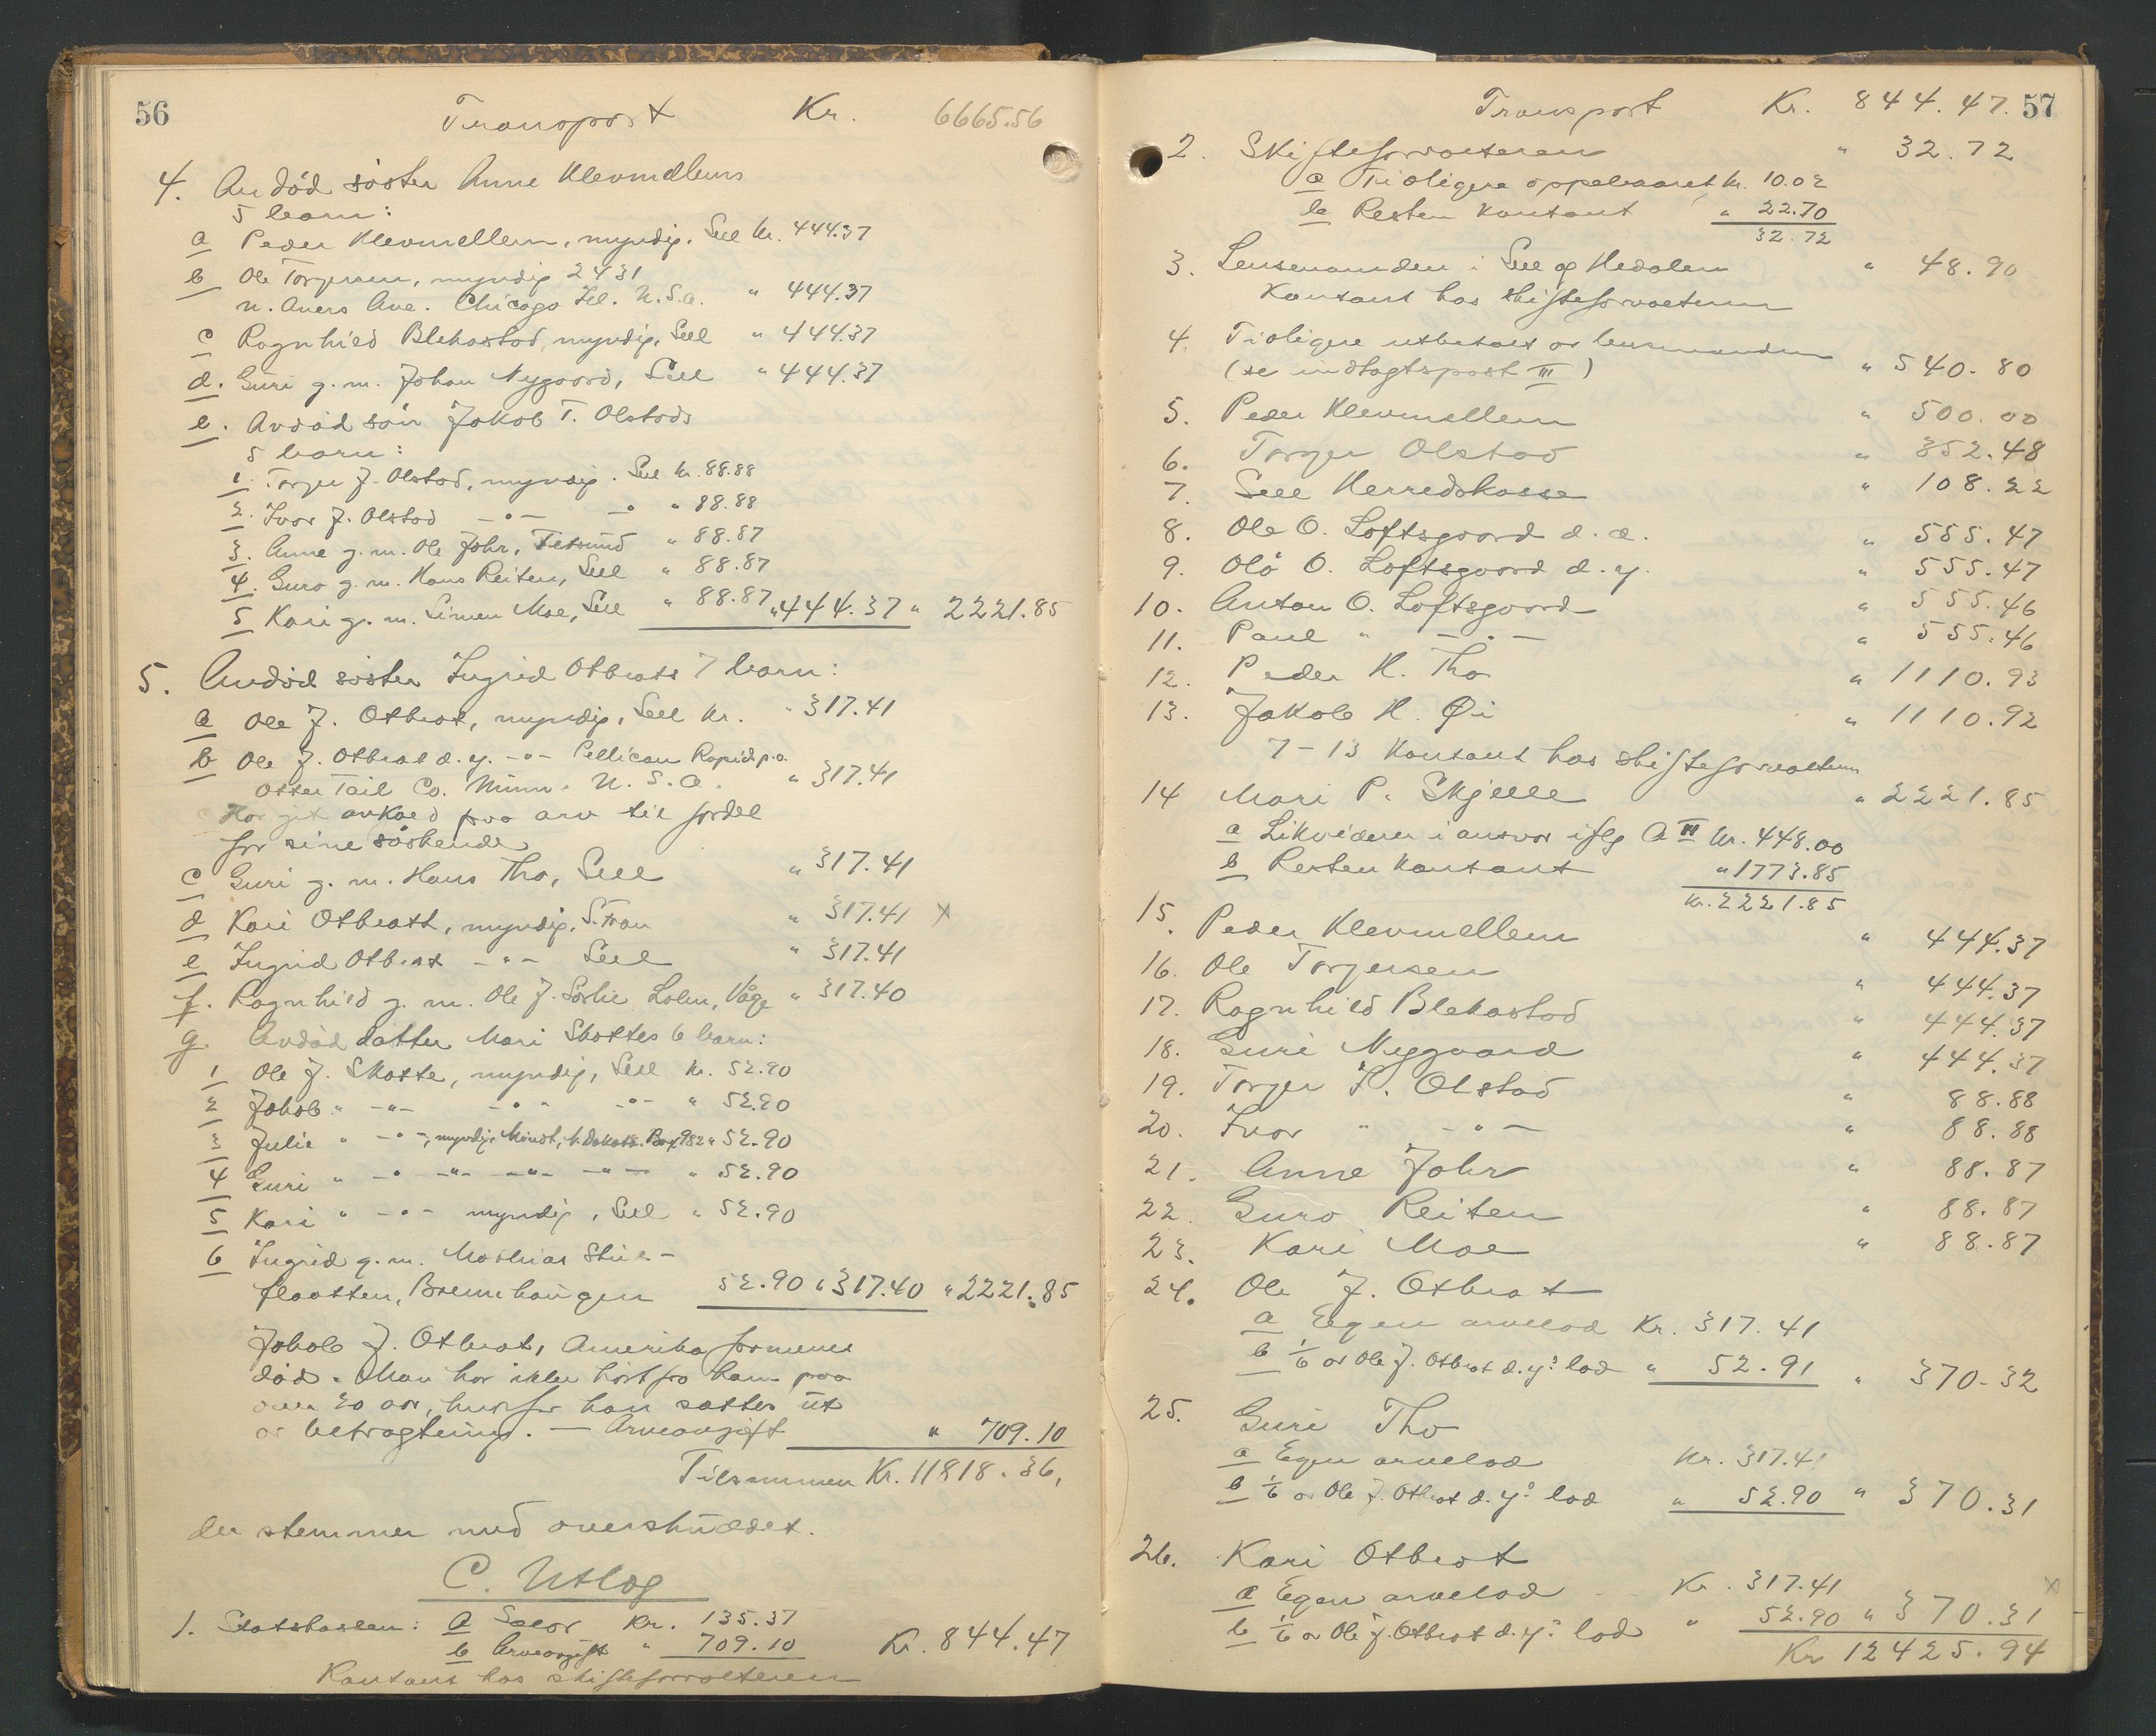 56
Transport Kr. 6665.56
4. Avdød søster Anne Klevmellems
5 barn:
a Peder Klevmellem, myndig, Sell kr. 444.37
b Ole Torgersen, myndig 2431
N. Avers Ave. Chicago Ill. U.S.A. " 444.37
c Ragnhild Blekastad, myndig, Sell " 444.37
d. Guri g.m. Johan Nygaard, Sell " 444.37
e. Avdød søn Jakob T. Olstads
5 barn:
1. Torger J. Olstad, myndig. Sell kr. 88.88
2. Ivar J. Olstad -"- -" " 88.88
3. Anne g.m. Ole Johr, Fetsund " 88.87
4. Guro g.m. Hans Reiten, Sell " 88.87
5 Kari g.m. Simen Moe, Sell " 88.87 " 444.37 " 2221.85
5. Avdød søster Ingrid Otbrats 7 barn:
a Ole J. Otbrat, myndig, Sell kr. " 317.41
b Ole J. Otbrat d.y. -"- Pellican Rapids p.o.
Otter Tail Co. Minn. U.S.A. " 317.41
Har git avkald paa arv til fordel
for sine søskende
c Guri g.m. Hans Tho, Sell " 317.41
d Kari Otbratt, myndig, S. Fron " 317.41 x
e Ingrid Otbrat -"- Sell " 317.41
f. Ragnhild g.m. Ole J. Sørlie Lalm, Våge " 317.40
g. Avdød datter Mari Skottes 6 barn:
1 Ole J. Skotte, myndig, Sell kr. 52.90
2 Jakob " -"- -"- -"- " 52.90
3 Julie " -"-, myndig, Minot, N. Dakota. Box 982 " 52.90
4 Guri " -"- -"- -"- -"- " 52.90
5 Kari " -"- myndig, Sell " 52.90
6 Ingrid g.m. Mathias Stue-
flaatten, Brennhaugen 52.90 " 317.40 " 2221.85
Jakob J. Otbrat, Amerika formenes
død. Man har ikke hørt fra ham paa
over 20 aar, hvorfor han sættes ut
av betragtning. — Arveavgift " 709.10
Tilsammen Kr. 11818.36,
der stemmer med overskuddet.
C. Utlæg
1. Statskassen: a Salær Kr. 135.37
b Arveavgift " 709.10 Kr. 844.47
Kontant hos skifteforvalteren
Transport Kr. 844.47. 57
2. Skifteforvalteren " 32.72
a Tidligere oppebaaret kr. 10.02
b Resten kontant " 22.70
32.72
3. Lensmanden i Sell og Hedalen " 48.90
Kontant hos skifteforvalteren
4. Tidligere utbetalt av lensmanden
(se indtægtspost III) " 540.80
5. Peder Klevmellem " 500.00
6. Torger Olstad " 352.48
7. Sell Herredskasse " 108.22
8. Ole O. Loftsgaard d.æ. " 555.47
9. Ola O. Loftsgaard d.y. " 555.47
10. Anton O. Loftsgaard " 555.46
11. Paul " -"- " 555.46
12. Peder H. Tho " 1110.93
13. Jakob H. Øi " 1110.92
7-13 Kontant hos skifteforvalteren
14 Mari P. Skjelle " 2221.85
a Likviderer i ansvar iflg A III kr. 448.00
b Resten kontant " 1773.85
Kr. 2221.85
15. Peder Klevmellem " 444.37
16. Ole Torgersen " 444.37
17. Ragnhild Blekastad " 444.37
18. Guri Nygaard " 444.37
19. Torger J. Olstad " 88.88
20. Ivar " -"- " 88.88
21. Anne Johr " 88.87
22. Guro Reiten " 88.87
23. Kari Moe " 88.87
24. Ole J. Otbrat
a Egen arvelod Kr. 317.41
b 1/6 av Ole J. Otbrat d.y.s lod " 52.91 " 370.32
25. Guri Tho
a Egen arvelod Kr. 317.41
b 1/6 av Ole J. Otbrat d.y.s lod " 52.90 " 370.31
26. Kari Otbrat
a Egen arvelod Kr. 317.41 x
b 1/6 av Ole J. Otbrat d.y.s lod " 52.90 " 370.31
Kr 12425.94